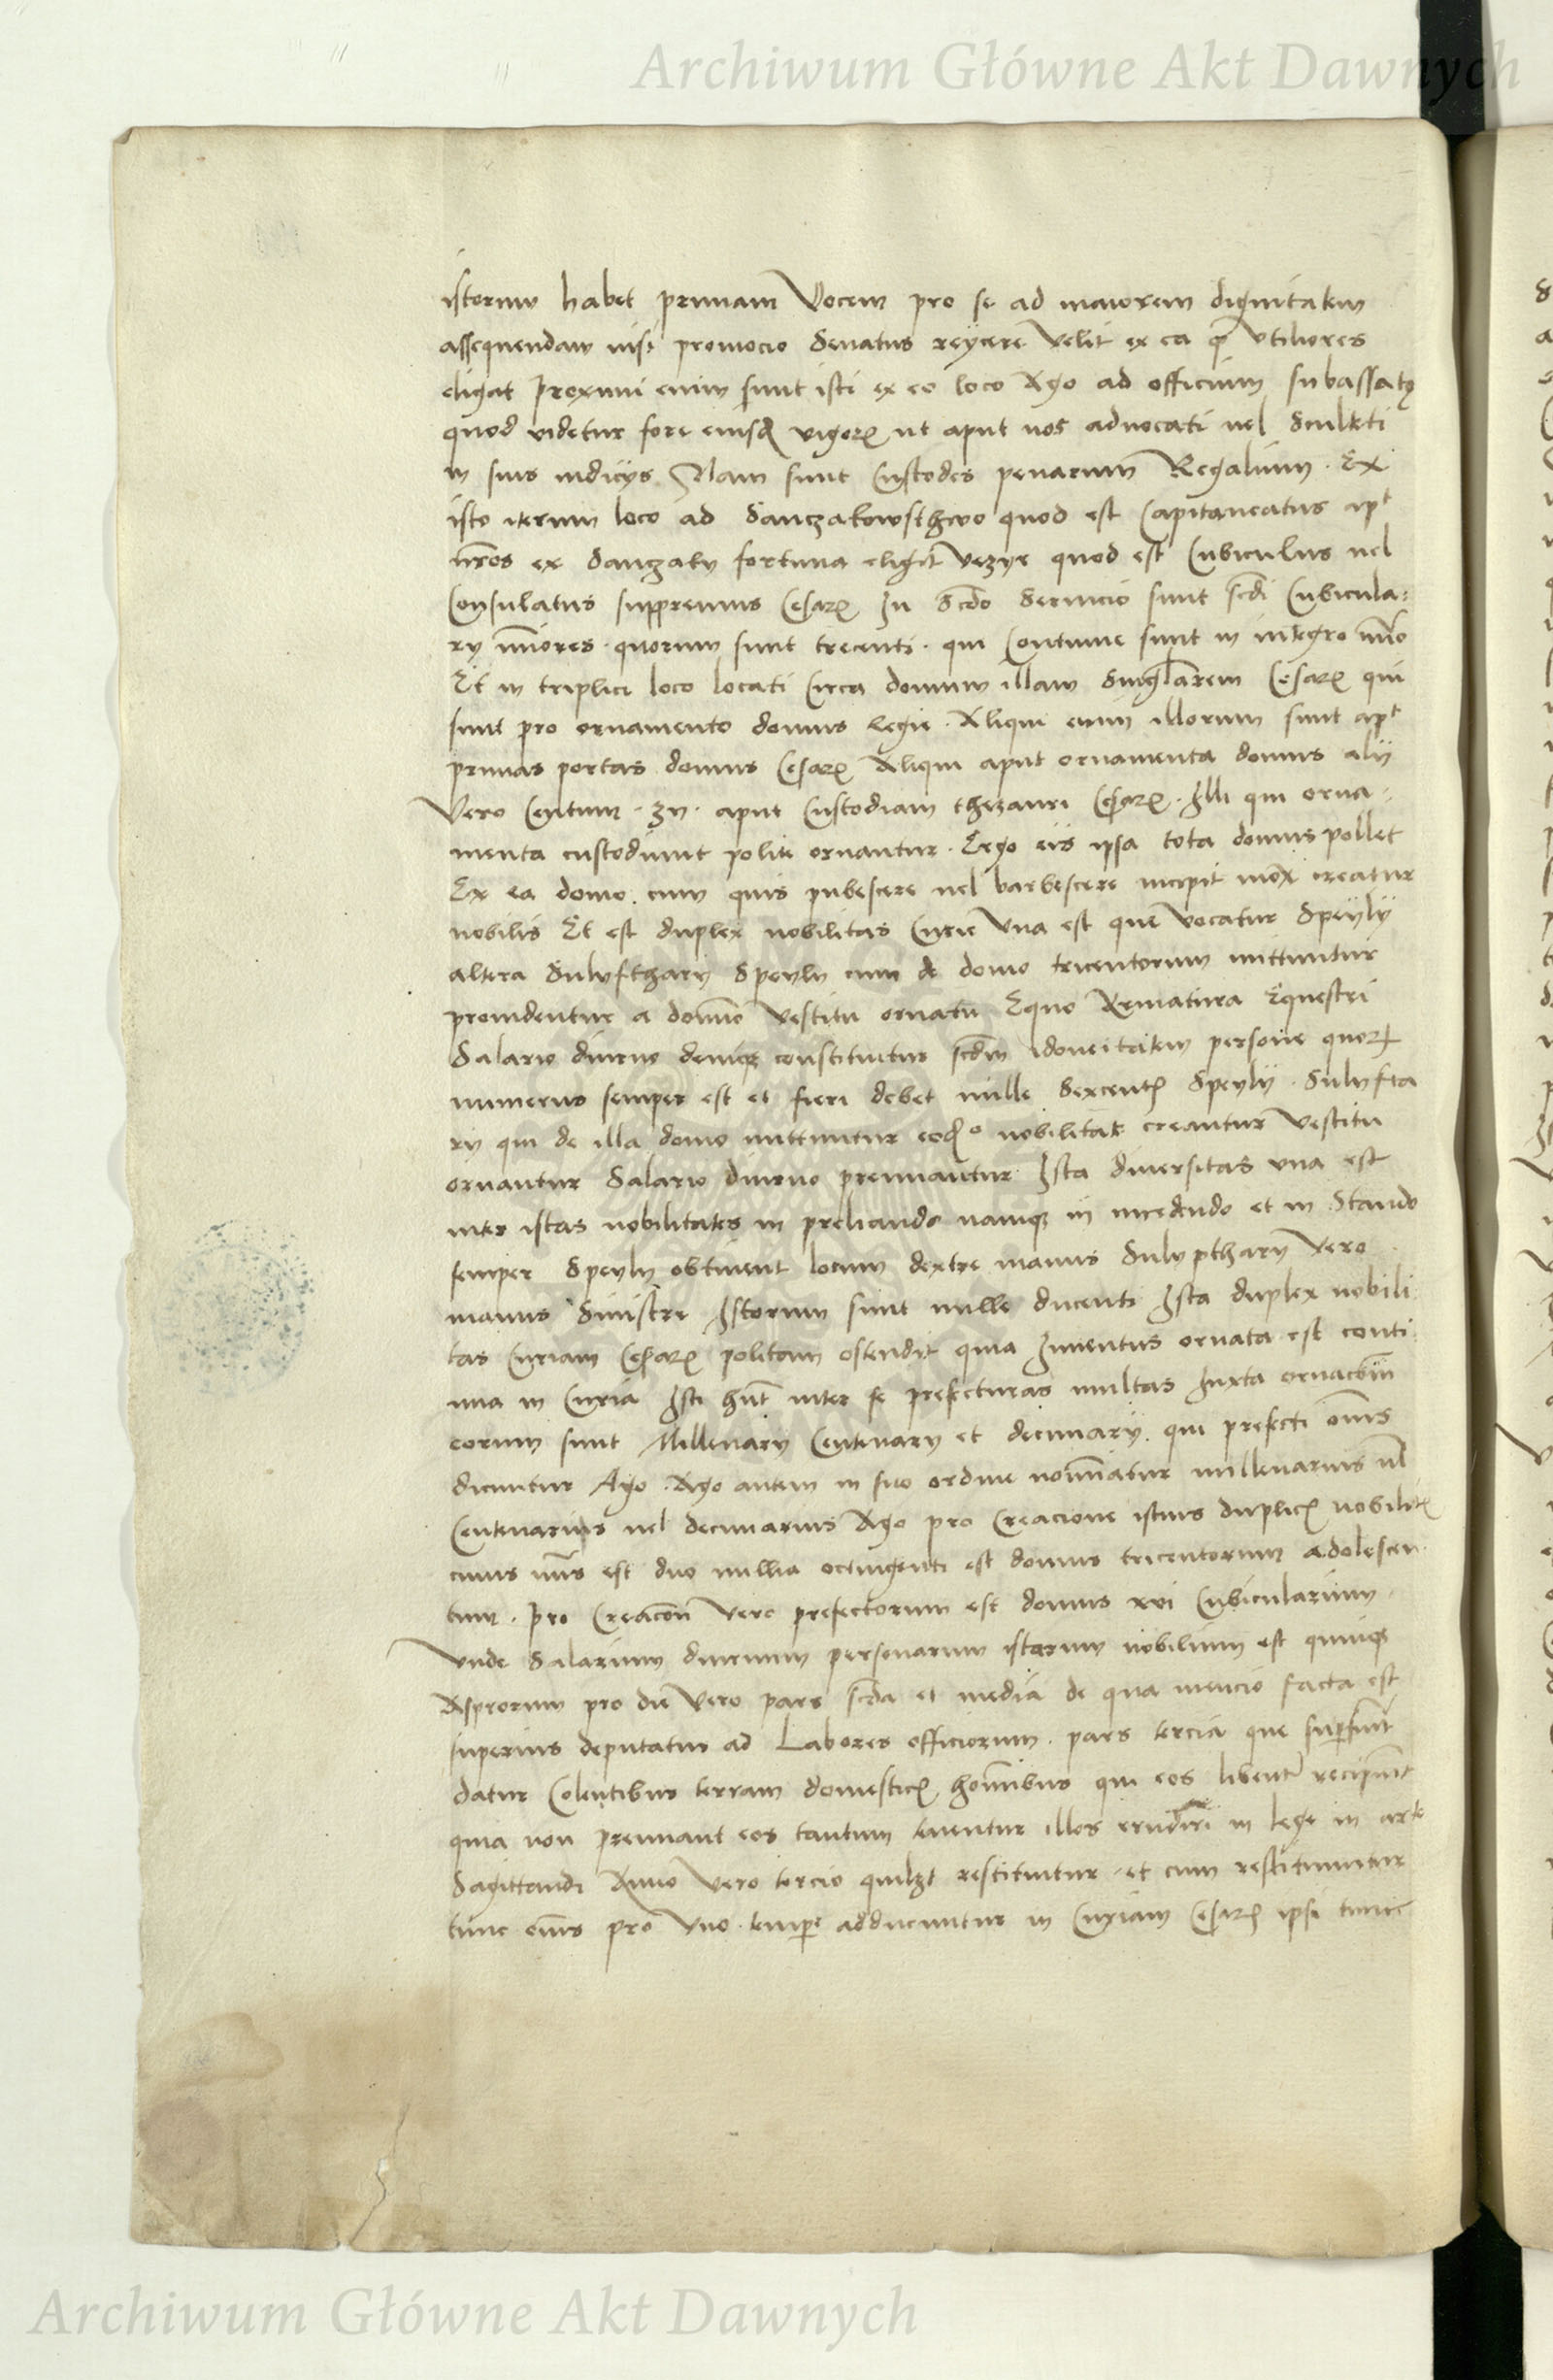 Archiwum Główne Akt Dawnych
istorum habet primam Vocem pro se ad maiorem dignitatem
assequendam nisi promocio Senatus reÿcere velit ex ea qꝫ vtiliores
eligat Proximi enim sunt isti ex eo loco Ago ad officium subassatꝫ
quod videtur fore eiusd vigoris ut aput nos advocati vel Sculteti
in suis iudicÿs Nam sunt Custodes penarum Regalium. Ex
isto iterum loco ad Sanczakowsthwo quod est Capitaneatus apt
nr̄os ex Sanczaky fortuna eligit Vezÿr quod est Cubiculus vel
Consulatus suppremus Cesaris In Scdo Seruicio sunt scdi Cubicula:
rÿ minores. quorum sunt trecenti. qui Continue sunt in integro nūo
Et in triplici loco locati Circa domum illam Singlarem Cesaris qui
sunt pro ornamento domus Regie. Aliqui enim illorum sunt apt
primas portas domus Cesaris Aliqui aput ornamenta domus alÿ
Vero Centum. aput Custodiam thezauri Cesaris. Illi qui orna-
menta custodiunt polite ornantur. Ergo eis ipsa tota domus pollet
Ex ea domo. cum quis pubescere vel barbescere incipit mox creatur
nobilis Et est duplex nobilitas Curie Vna est que Vocatur Speÿlÿ
altera Sulyftharÿ Speyly cum de domo tricentorum mittuntur
prouidentur a domino Vestitu ornatu Equo Armatura Equestri
Salario diurno deniqꝫ constituitur scdm idoneitatem persone quorꝫ
numerus semper est et fieri debet mille Sexcenti Speylÿ. Sulyfta
rÿ qui de illa domo mittuntur eodo nobilitate creantur Vestitu
ornantur Salario diurno premiantur Ista diuersitas vna est
inter istas nobilitates in preliando namqꝫ in incedendo et in Stando
semper Speyly obtinent locum dextre manus Sulyptharÿ Vero
manus Sinistre Istorum sunt mille ducenti Ista duplex nobili
tas Curiam Cesaris politam ostendit quia Iuuentus ornata est conti
nua in Curia Isti hnt inter se prefecturas multas Iuxta ornacōm
eorum sunt Millenarÿ Centenarÿ et decimarÿ. qui prefecti om̄s
dicuntur Ago. Ago autem in suo ordine nominatur millenarius vl
Centenarius vel decimarius Ago pro Creacione istius duplicis nobilitis
cuius nūs est duo millia octingenti est domus tricentorum adolescen-
tum. Pro Creacōn Vero prefectorum est domus xvi Cubicularium.
Vnde Salarium diurnum personarum istarum nobilium est quinqꝫ
Asprorum pro die Vero pars scda et media de qua mencio facta est
superius deputatur ad Labores officiorum. pars tercia que supersunt
datur Colentibus terram domesticis hominibus qui eos libenter recipiunt
quia non premiant eos tantum tenentur illos erudiri in lege in arte
Sagittandi Anno Vero tercio quilꝫt restituitur. et cum restituuntur
tunc om̄s pro Vno tempore adducuntur in Curiam Cesaris ipsi tunc
Archiwum Główne Akt Dawnych